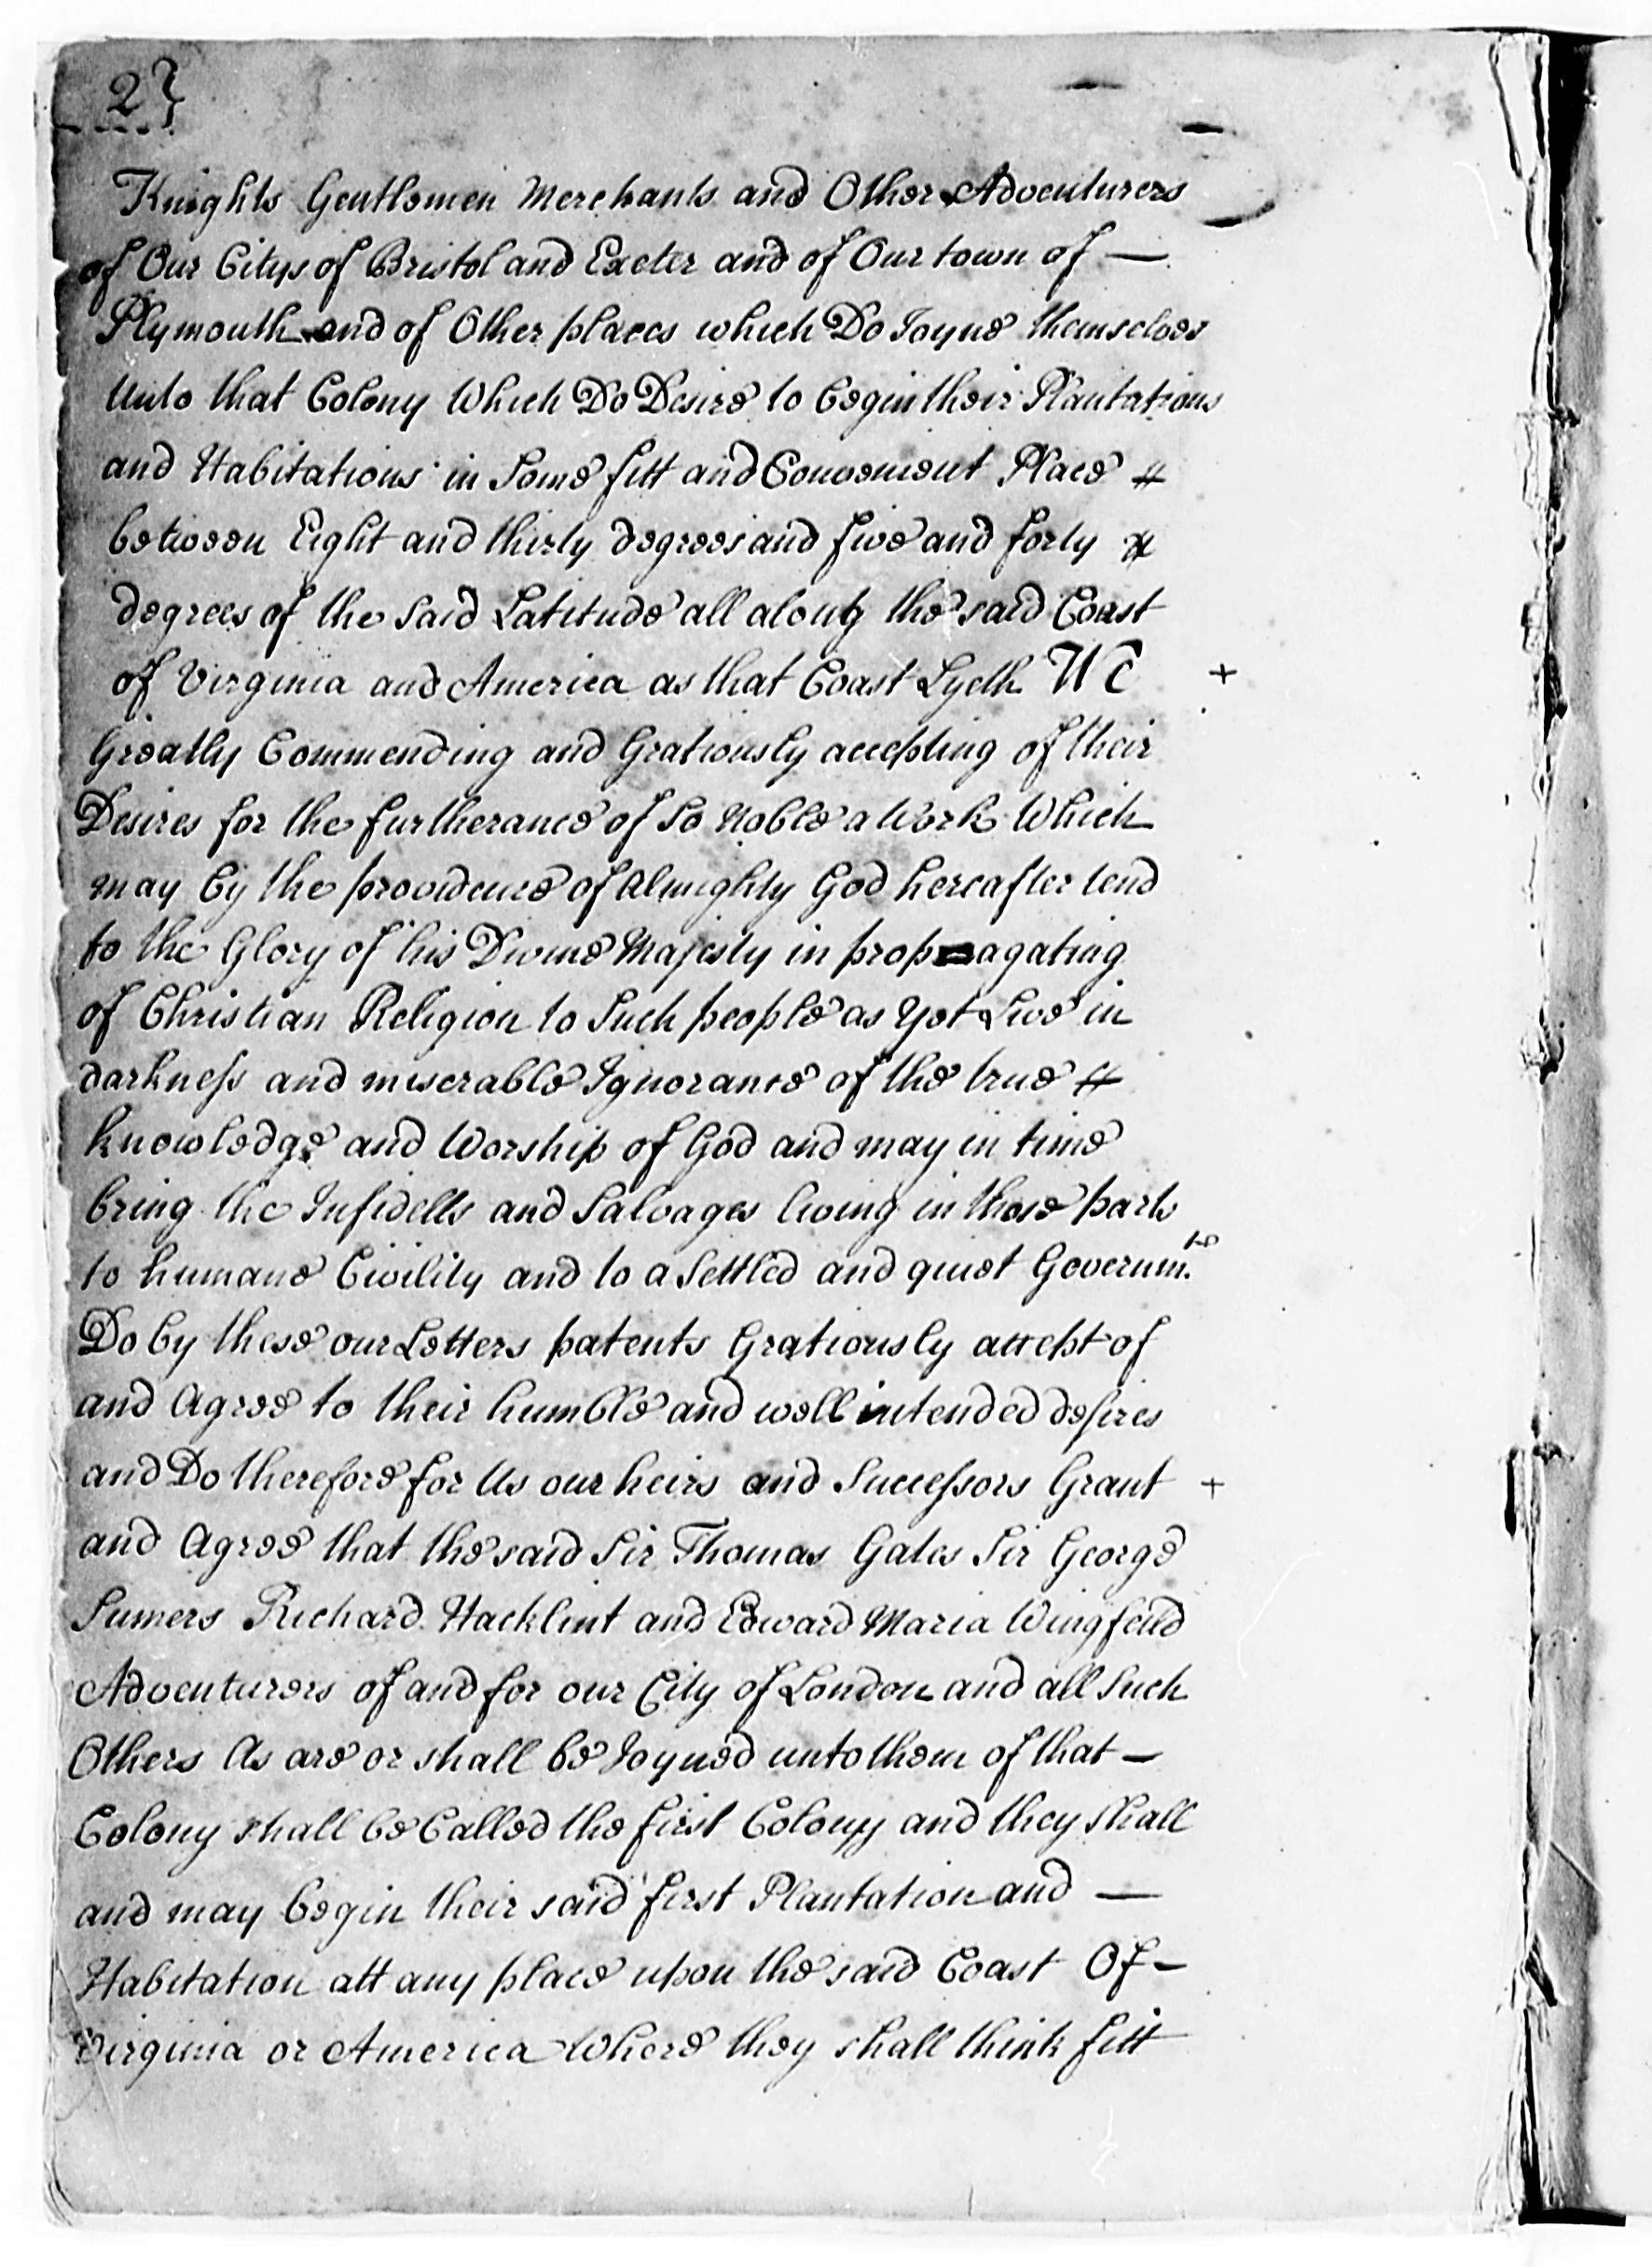 2}
Knights Gentlemen Merchants and Other Adventurers
of Our Citys of Bristol and Exeter and of Our town of —
Plymouth and of Other places which Do Joyne themselves
Unto that Colony Which Do Desire to begin their Plantations
and Habitations in Some fitt and Convenient Place #
between Eight and thirty degrees and five and forty #
degrees of the Said Latitude all along the said Coast
of Virginia and America as that Coast Lyeth We +
Greatly Commending and Gratiously accepting of their
Desires for the furtherance of So Noble a Work Which
may by the providence of Almighty God hereafter tend
to the Glory of his Divine Majesty in propagating
of Christian Religion to Such people as Yet Live in
darkness and miserable Ignorance of the true #
knowledge and Worship of God and may in time
bring the Infidells and Salvages living in those parts
to humane Civility and to a Settled and quiet Governm.ts
Do by these our Letters patents Gratiously accept of
and Agree to their humble and well intended desires
and Do therefore for Us our heirs and Successors Grant +
and Agree that the said Sir Thomas Gates Sir George
Sumers Richard Hacklint and Edward Maria Wingfeild
Adventurers of and for our City of London and all Such
Others As are or shall be Joyned unto them of that —
Colony shall be Called the first Colony and they shall
and may begin their said first Plantation and —
Habitation att any place upon the said Coast Of —
Virginia or America Where they shall think fitt